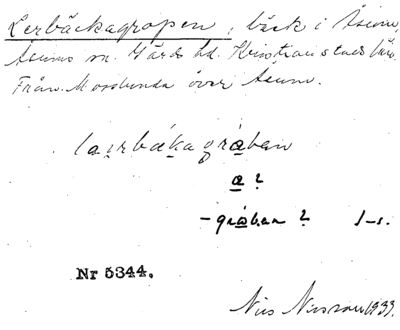 Lerbäckagropen, bäck i Åsum,
Åsums sn. Gärds hd. Kristianstads län.
Från Mosslunda över Åsum.
laerbákagrában
a?
-grában? S-s.
Nr 5344.
Nils 1933.